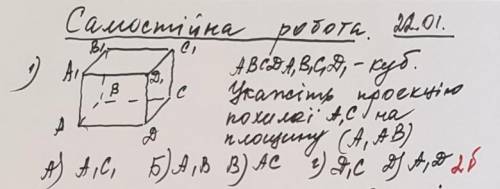 Самостійна робота. 22.01.
1)
B₁ C₁
A₁ D₁
B C
A D
ABCDA₁B₁C₁D₁ - куб.
Укажіть проєкцію
похилої A₁C на
площину (A₁AB)
А) A₁C₁ Б) A₁B В) AC Г) D₁C Д) A₁D 2б